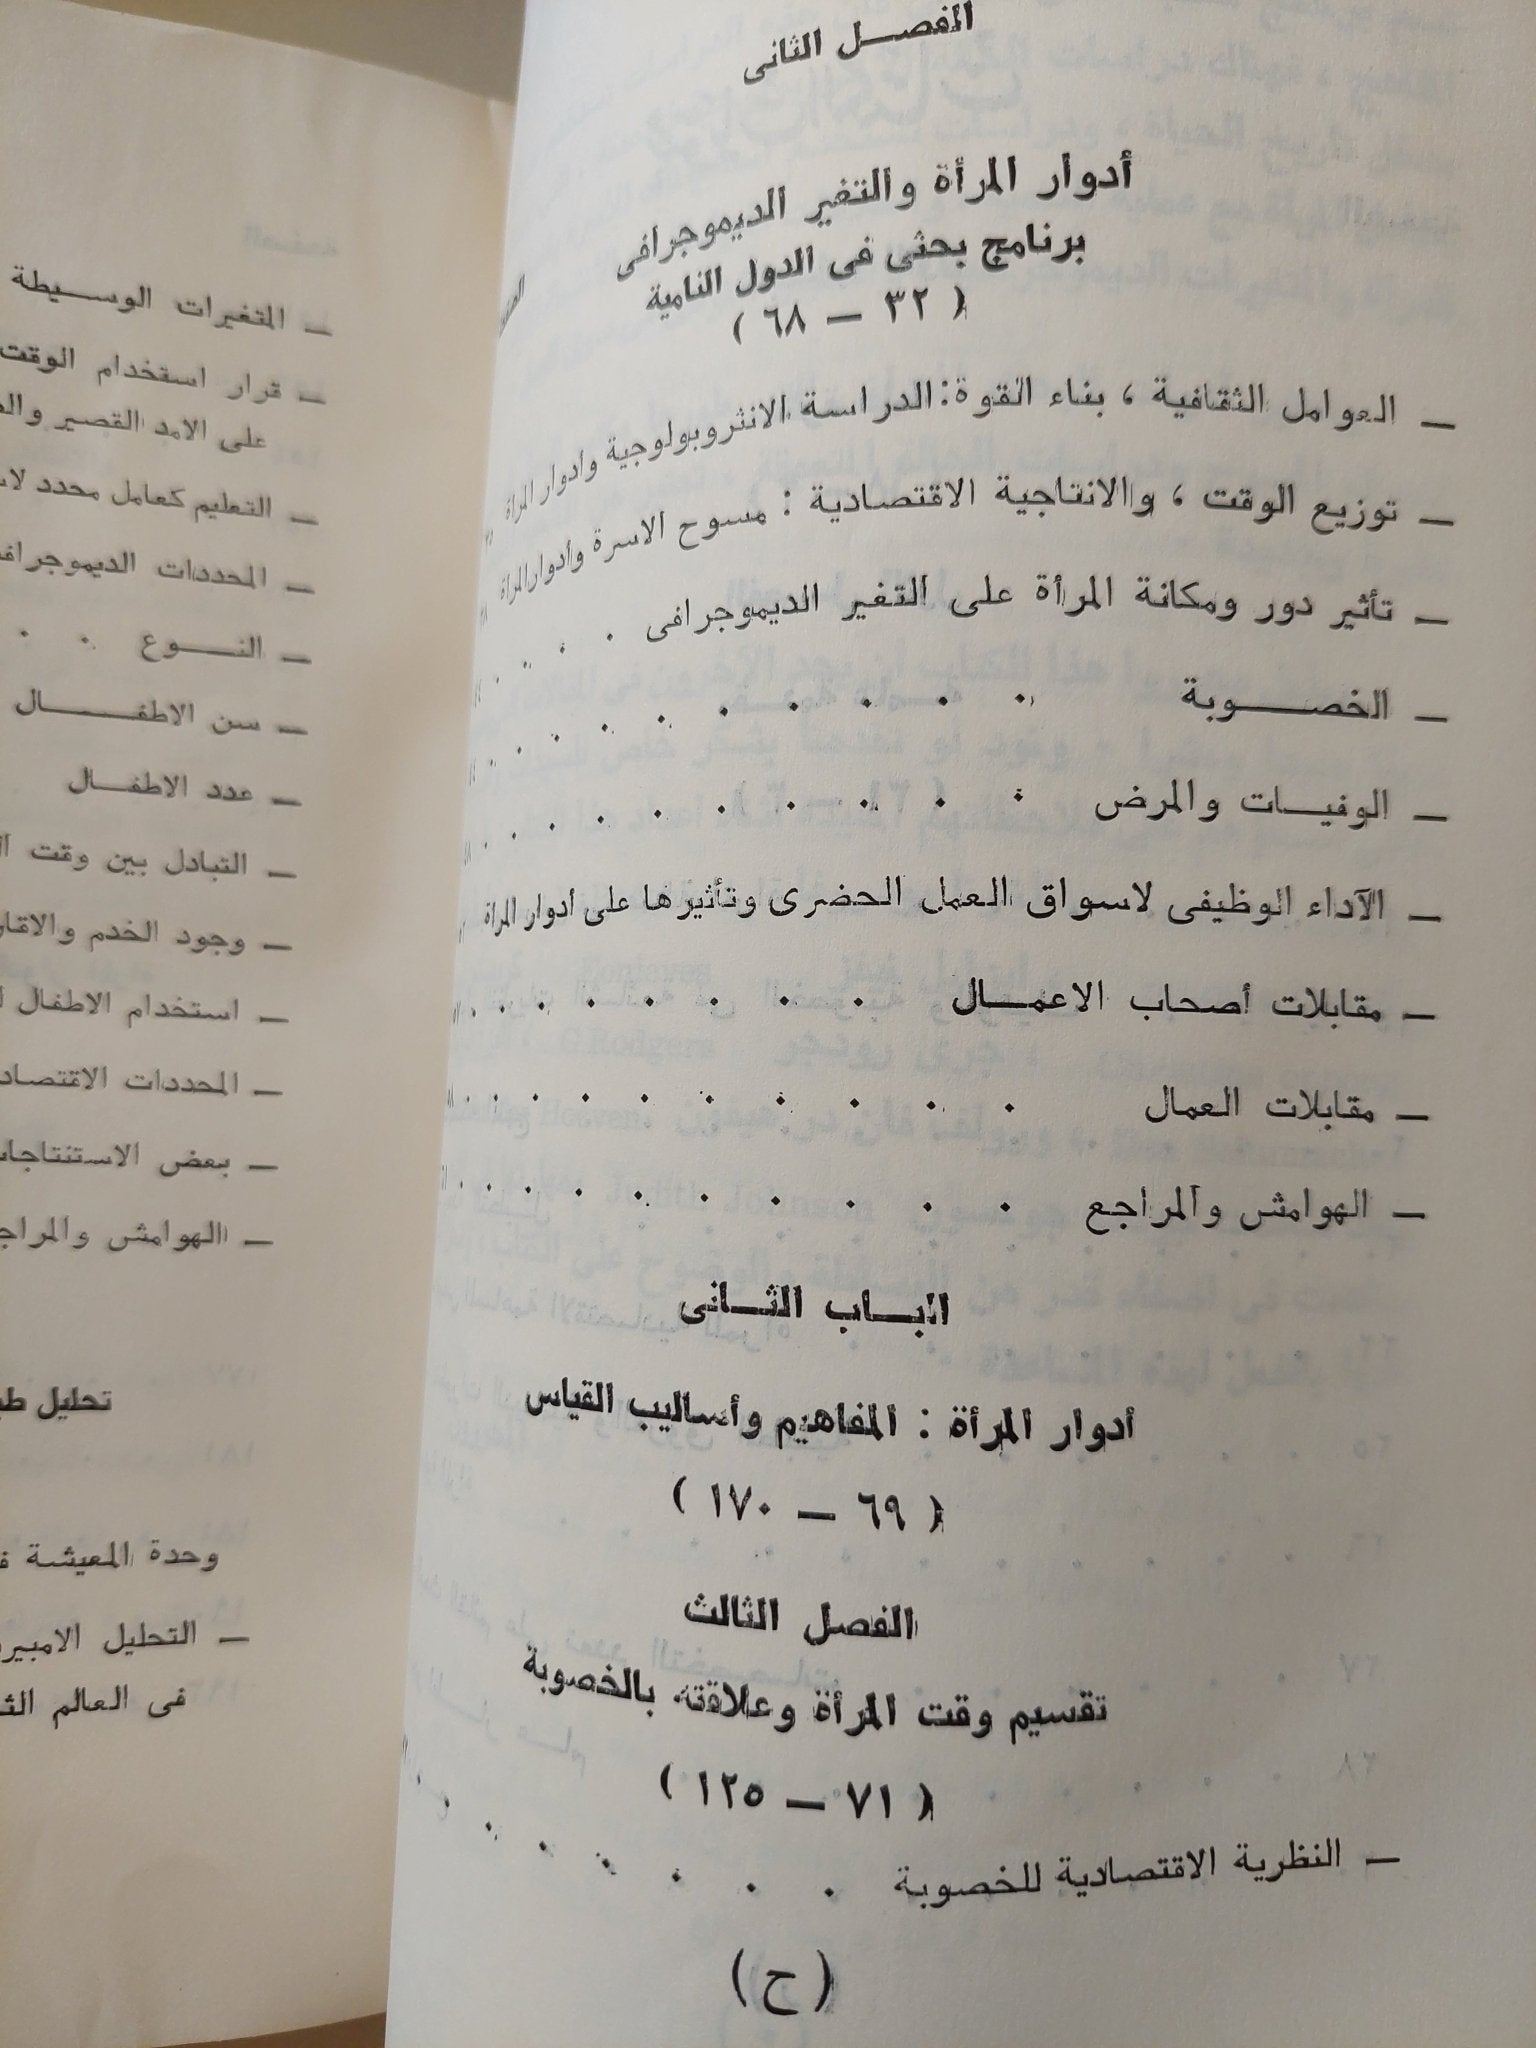 الفصـــل الثانى
أدوار المرأة والتغير الديموجرافى
برنامج بحثى فى الدول النامية
( ٣٢ — ٦٨ )
— العوامل الثقافية ، بناء القوة : الدراسة الانثروبولوجية وأدوار المرأة
— توزيع الوقت ، والانتاجية الاقتصادية : مسوح الاسرة وأدوار المرأة
— تأثير دور ومكانة المرأة على التغير الديموجرافى . . . .
— الخصـــــوبة . . . . . . . . .
— الوفيـــات والمرض . . . . . . . . .
— الآداء الوظيفى لاسواق العمل الحضرى وتأثيرها على أدوار المرأة
— مقابلات أصحاب الاعمـــال . . . . . . . . .
— مقابلات العمال . . . . . . . . . .
— الهوامش والمراجع . . . . . . . . . .
البـــاب الثـــانى
أدوار المرأة : المفاهيم وأساليب القياس
( ٦٩ — ١٧٠ )
الفصل الثالث
تقسيم وقت المرأة وعلاقته بالخصوبة
( ٧١ — ١٢٥ )
— النظرية الاقتصادية للخصوبة . . . . . . . .
( ح )
— المتغيرات الوســـيطة
— قرار استخدام الوقت
على الامد القصير
— التعليم كعامل محدد
— المحددات
— النـــــوع . .
— سن الاطفـــــال
— عدد الاطفـــال
— التبادل بين وقت
— وجود الخدم
— استخدام الاطفال
— المحددات
— بعض
— الهوامش
تحليل
وحدة المعيشة
— التحليل
فى العالم